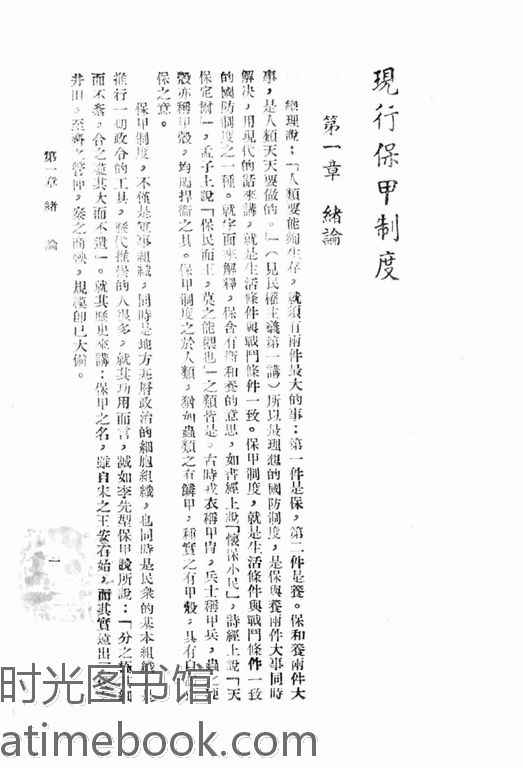 現行保甲制度
第一章 緒論
總理說：「人類要能夠生存，就須有兩件最大的事：第一件是保，第二件是養。保和養兩件大
事，是人類天天要做的。」（見民權主義第一講）所以最理想的國防制度，是保與養兩件大事同時
解决，用現代的話來講，就是生活條件與戰鬥條件一致。保甲制度，就是生活條件與戰鬥條件一致
的國防制度之一種。就字面來解釋，保含有衛和養的意思，如書經上說「懷保小民」，詩經上說「天
保定爾」，孟子上說「保民而王，莫之能禦也」之類皆是。古時戎衣稱甲冑，兵士稱甲兵，蟲之
殼亦稱甲殼，均爲捍衛之具。保甲制度之於人類，猶如蟲類之有鱗甲，種實之有甲殼，具有自
保之意。
保甲制度，不僅是軍事組織，同時是地方政府政治的細胞組織，也同時是民衆的基本組織
推行一切政令的工具，歷代推崇的人很多，就其功用而言，誠如李先型保甲說所說：「分之極其細
而不紊，合之盡其大而不遺」。就其歷史來講：保甲之名，雖自宋之王安石始，而其實遠出
井田，至齊之管仲，秦之商鞅，規模卽已大備。
第一章 緒 論
一
时光图书馆
atimebook.com